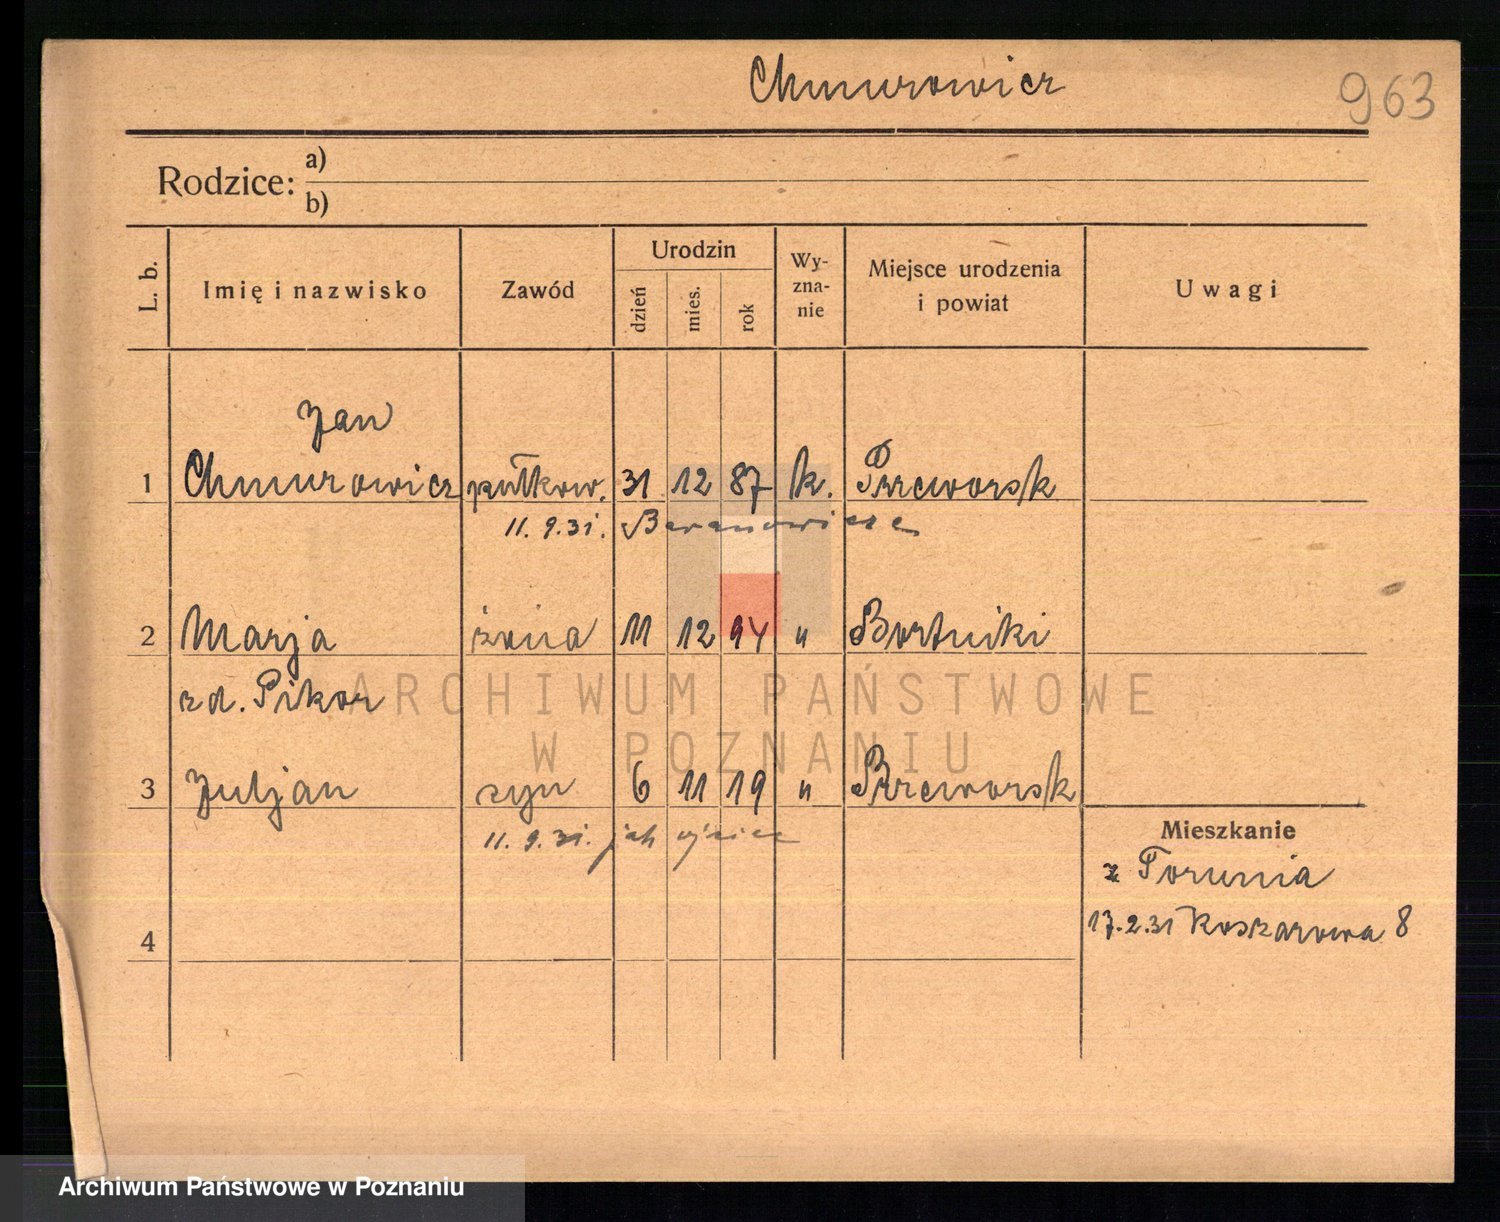 Chmurowicz
963
Rodzice:
a)
b)
L. b.
Imię i nazwisko
Zawód
Urodzin
dzień
mies.
rok
Wy-
zna-
nie
Miejsce urodzenia
i powiat
Uwagi
Jan
1 Chmurowicz pułkow. 31 12 87 k. Przeworsk
11. 9. 31. Baranowicze
2 Marja żona 11 12 94 " Bortniki
zd. Pikor
3 Juljan syn 6 11 19 " Przeworsk
11. 9. 31. jak ojciec
Mieszkanie
z Torunia
17.2.31 Koszarowa 8
4
ARCHIWUM PAŃSTWOWE
W POZNANIU
Archiwum Państwowe w Poznaniu